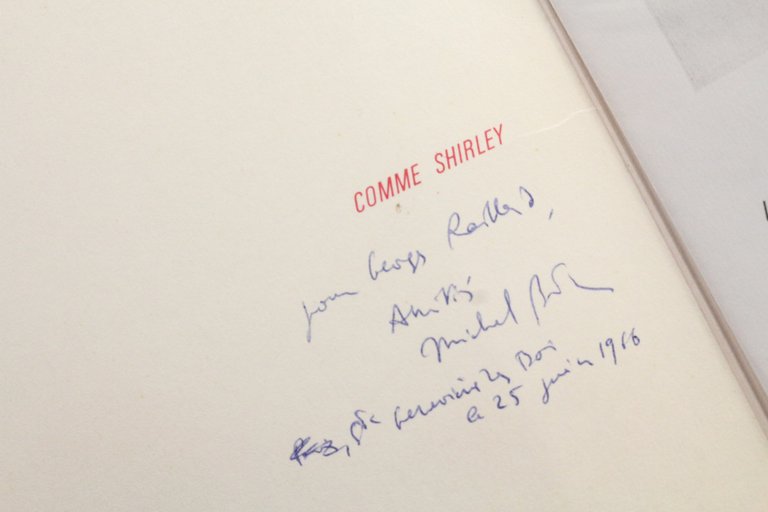 COMME SHIRLEY
pour Georges Raillard,
Amitiés
Michel Butor
Ste Geneviève des Bois
le 25 juin 1966